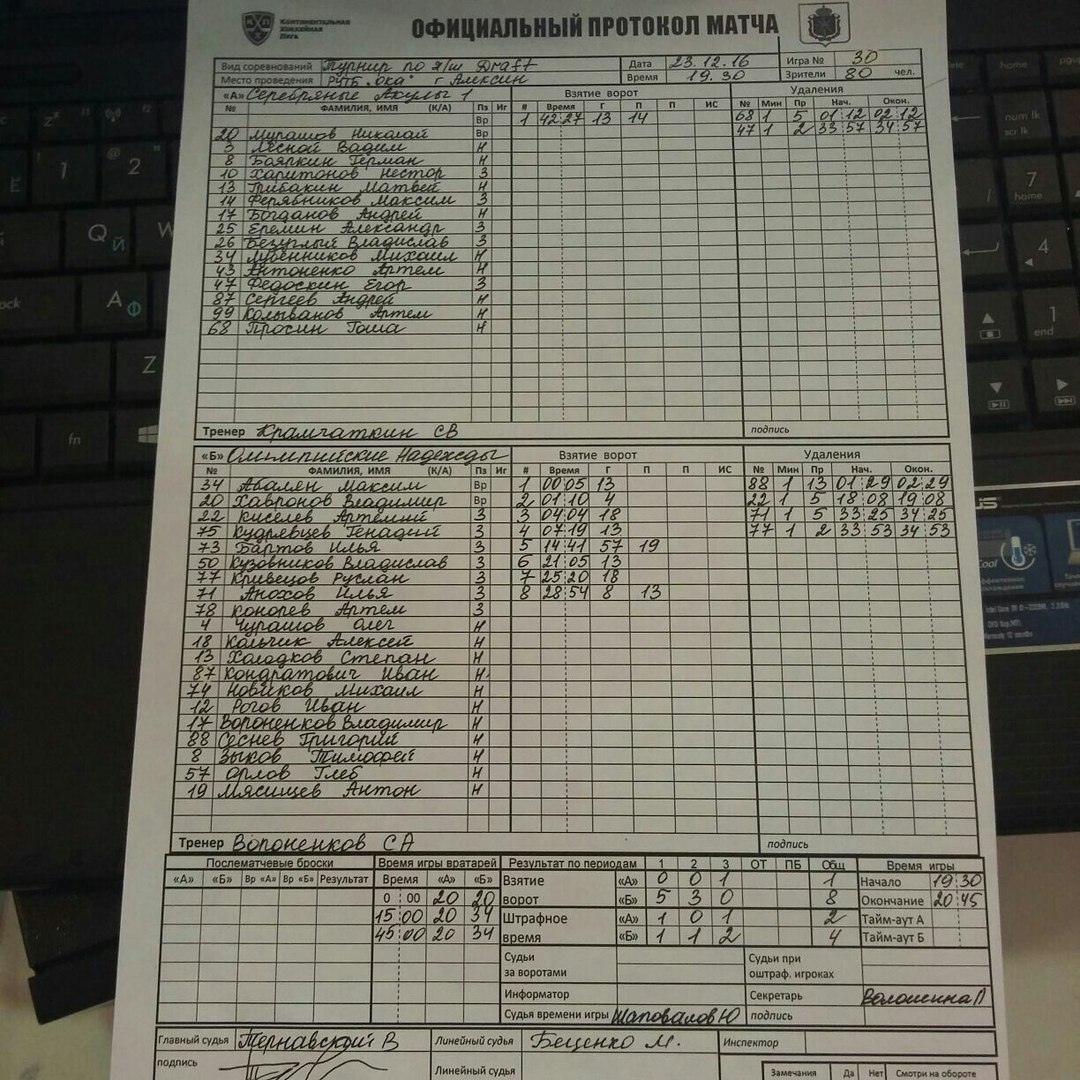 КОНТИНЕНТАЛЬНАЯ ХОККЕЙНАЯ ЛИГА
ОФИЦИАЛЬНЫЙ ПРОТОКОЛ МАТЧА
Вид соревнований Турнир по х/ш Draft Дата 23.12.16 Игра № 30
Место проведения РУТБ "Ока" г Алексин Время 19.30 Зрители 80 чел.
«А» Серебряные Акулы 1 Взятие ворот Удаления
№ ФАМИЛИЯ, ИМЯ (К/А) Пз Иг # Время Г П П ИС № Мин Пр Нач. Окон.
Вр 1 42 27 13 14 68 1 5 01 12 02 12
20 Мурашов Николай Вр 47 1 2 33 57 34 57
3 Лесной Вадим Н
8 Бояркин Герман Н
10 Харитонов Нестор З
13 Грибакин Матвей Н
14 Ферябников Максим З
17 Богданов Андрей Н
25 Еремин Александр З
26 Безуглый Владислав З
34 Лубенников Михаил Н
43 Антоненко Артем Н
47 Федоскин Егор З
87 Сергеев Андрей Н
99 Колыванов Артем Н
68 Просин Гоша Н
Тренер Крамчаткин СВ подпись
«Б» Олимпийские Надежды Взятие ворот Удаления
№ ФАМИЛИЯ, ИМЯ (К/А) Пз Иг # Время Г П П ИС № Мин Пр Нач. Окон.
34 Абалян Максим Вр 1 00 05 13 88 1 13 01 29 02 29
20 Хавронов Владимир Вр 2 01 10 4 22 1 5 18 08 19 08
22 Киселев Артемий З 3 04 04 18 71 1 5 33 25 34 25
75 Кудрявцев Генадий З 4 07 19 13 77 1 2 33 53 34 53
73 Бартов Илья З 5 14 41 57 19
50 Кузовников Владислав З 6 21 05 13
77 Кривецов Руслан З 7 25 20 18
71 Анохов Илья З 8 28 54 8 13
78 Конорев Артем З
4 Чурашов Олег Н
18 Кольчик Алексей Н
13 Холодков Степан Н
87 Кондратович Иван Н
74 Новиков Михаил Н
12 Рогов Иван Н
17 Вороненков Владимир Н
88 Сеснев Григорий Н
8 Зыков Тимофей Н
57 Орлов Глеб Н
19 Мясищев Антон Н
Тренер Вороненков СА подпись
Послематчевые броски Время игры вратарей Результат по периодам 1 2 3 ОТ ПБ Общ Время игры
«А» «Б» Вр «А» Вр «Б» Результат Время «А» «Б» Взятие ворот «А» 0 0 1 1 Начало 19 30
0 00 20 20 «Б» 5 3 0 8 Окончание 20 45
15 00 20 34 Штрафное время «А» 1 0 1 2 Тайм-аут А
45 00 20 34 «Б» 1 1 2 4 Тайм-аут Б
Судьи за воротами Судьи при оштраф. игроках
Информатор Секретарь Волошина Л
Судья времени игры Шаповалов Ю подпись
Главный судья Тернавский В Линейный судья Беценко М. Инспектор
подпись Линейный судья Замечания Да Нет Смотри на обороте